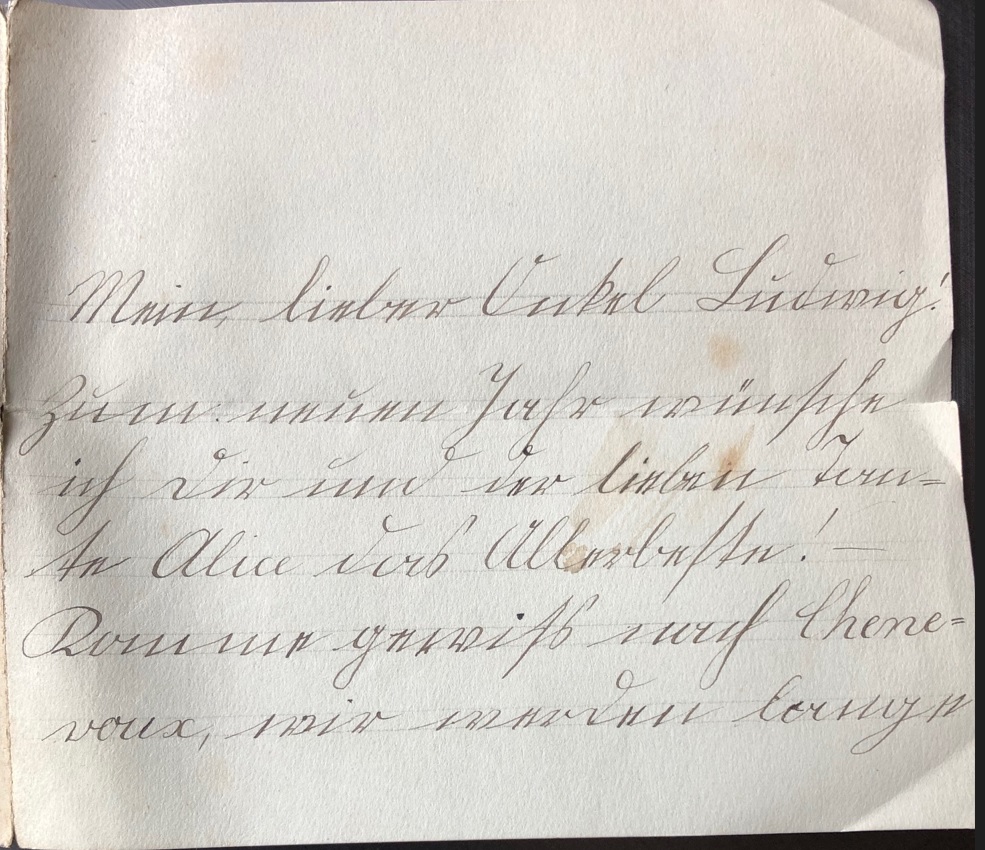 Mein lieber Onkel Ludwig!
Zum neuen Jahr wünsche
ich Dir und der lieben Tan=
te Alice das Allerbeste! —
Komme gewiß nach Chene=
vaux, wir werden lange